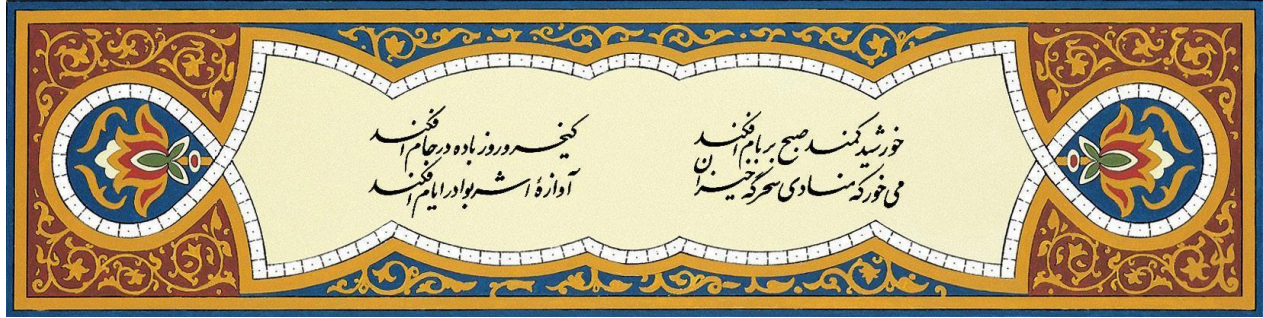 خورشید کمند صبح بر بام افکند
کیخسرو روز باده در جام افکند
می خور که منادی سحرگه خیزان
آوازهٔ اشربوا در ایام افکند